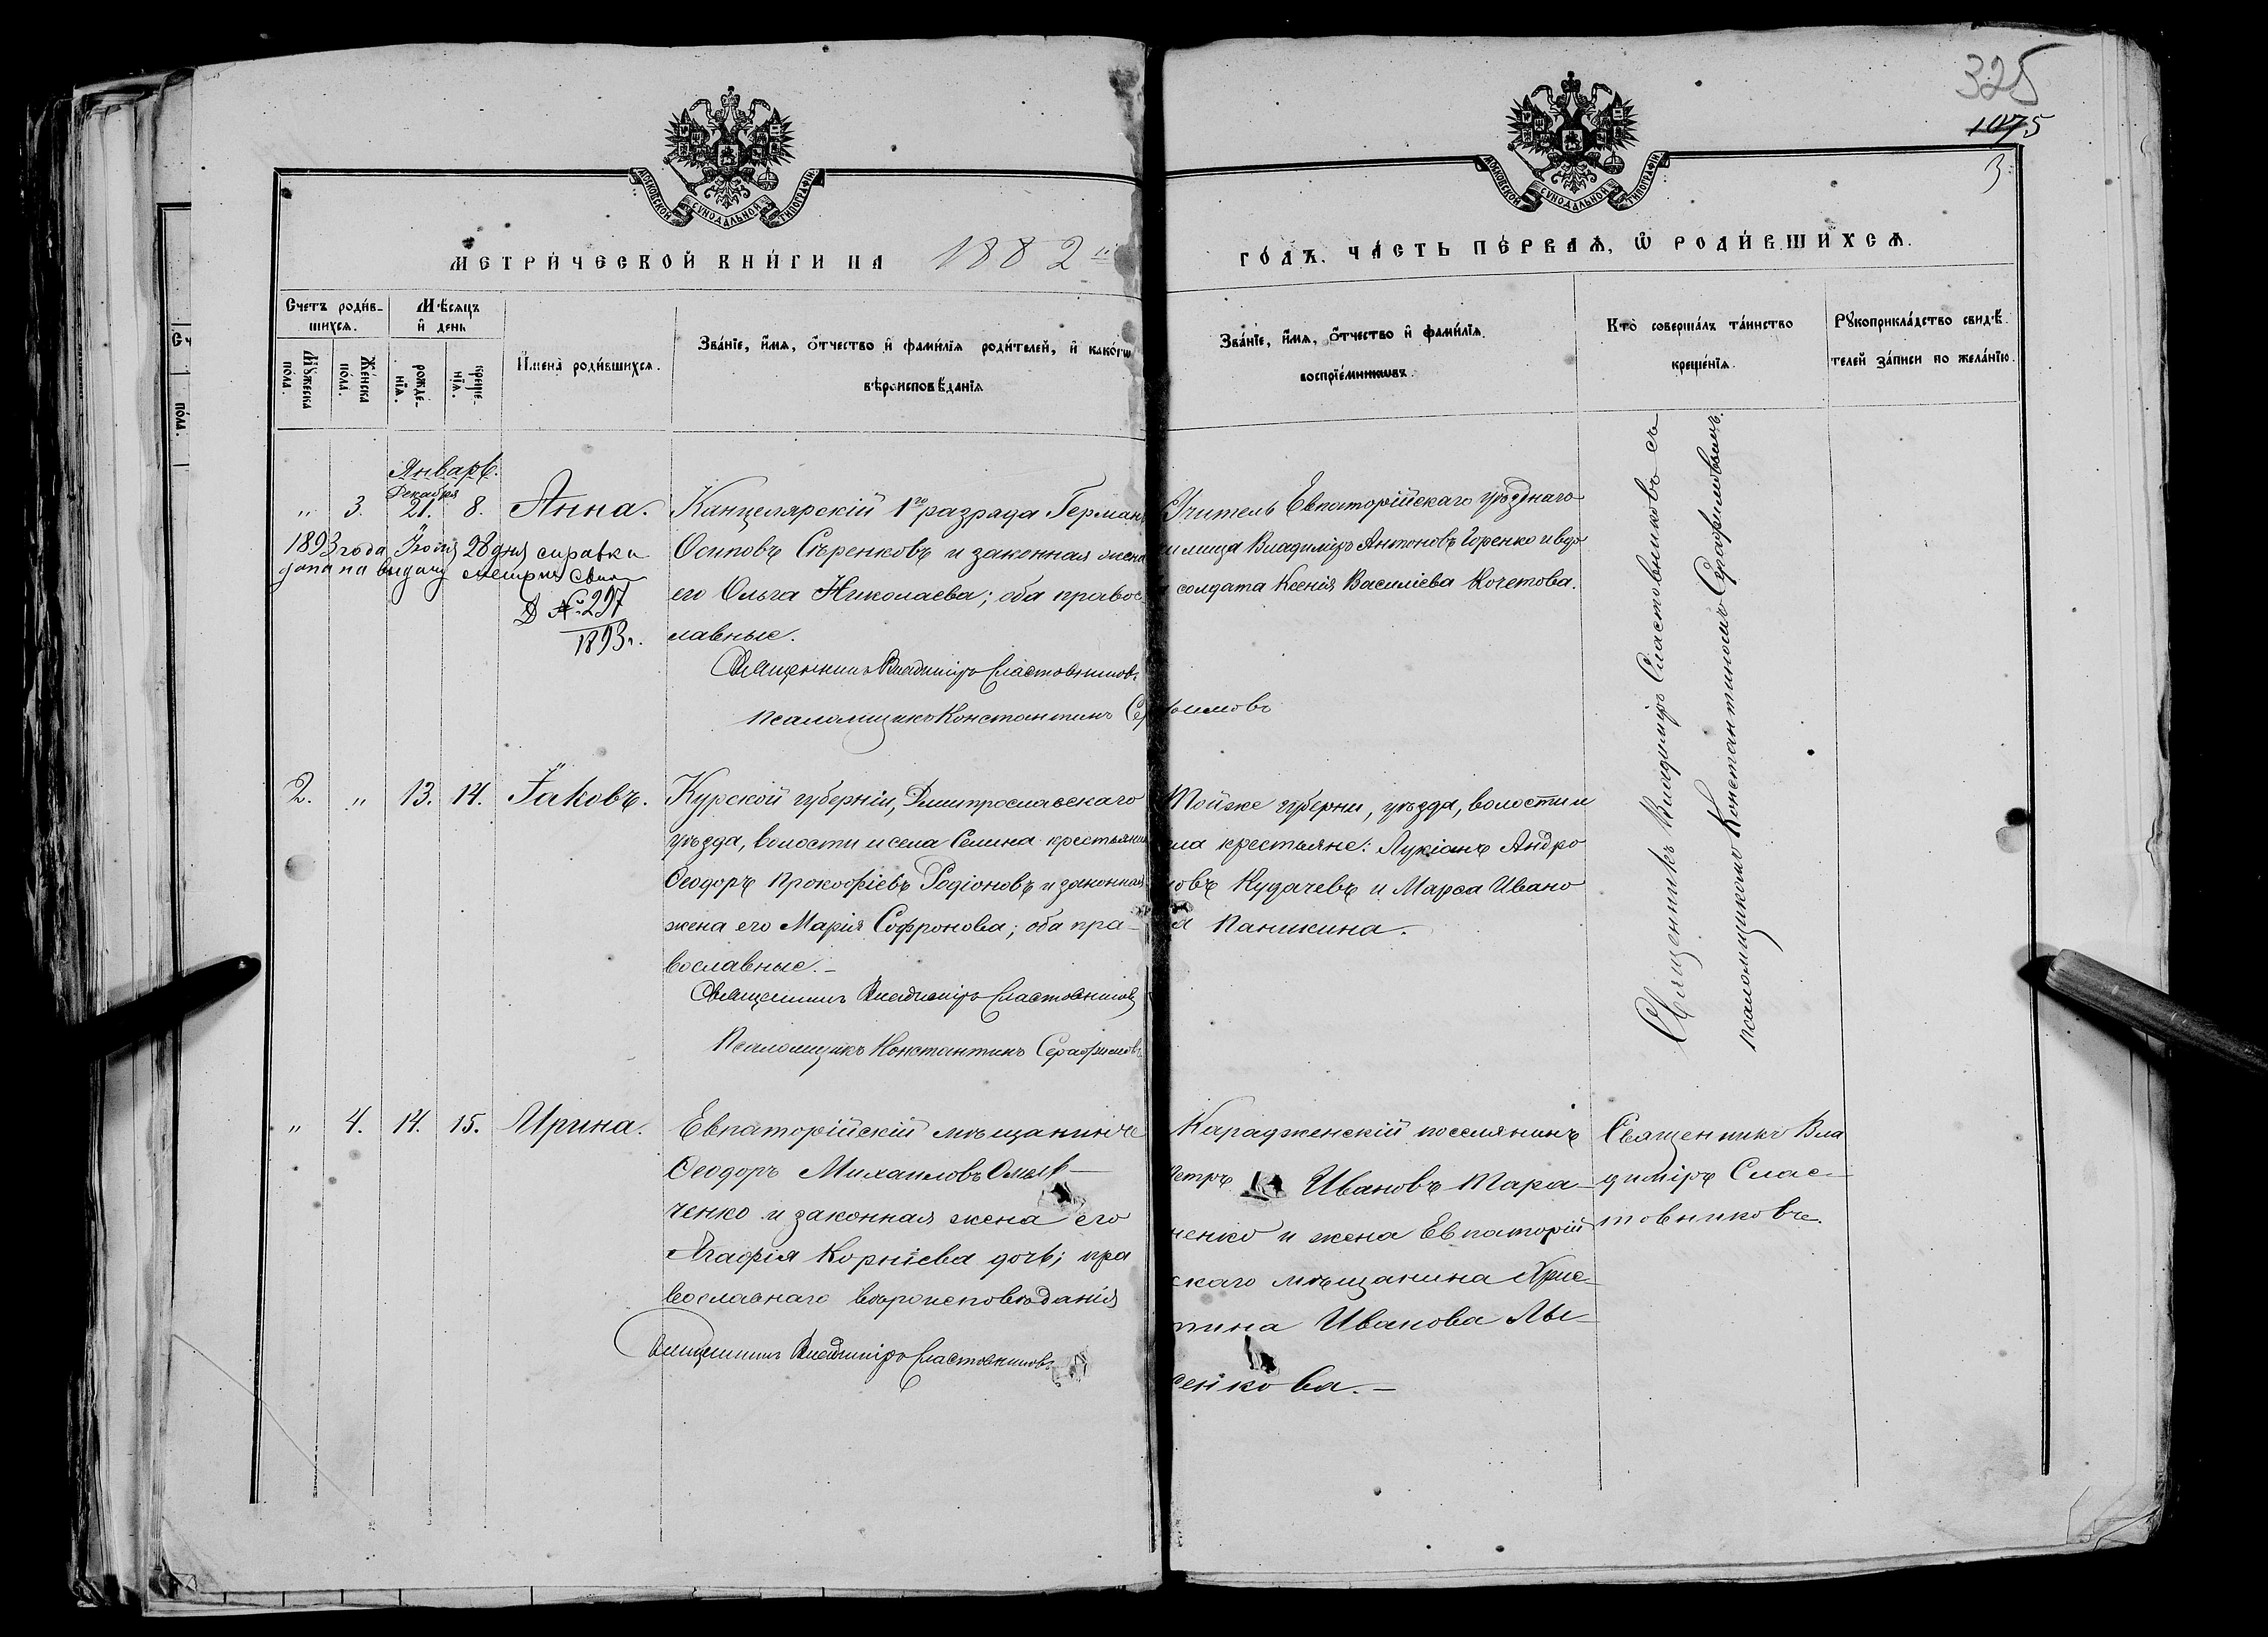 325
1075
3
МОСКОВСКОЙ СУНОДАЛЬНОЙ ТИПОГРАФІИ
МОСКОВСКОЙ СУНОДАЛЬНОЙ ТИПОГРАФІИ
МЕТРИ́ЧЕСКОЙ КНИ́ГИ НА 1882 й
ГО́ДЪ. ЧА́СТЬ ПЕ́РВАѦ, Ѡ РОДИ́ВШИХСѦ.
Счетъ роди́в-
шихсѧ.
Мѣ́сѧцъ
и҆ день
Мꙋ́жеска
по́ла.
Же́нска
по́ла.
рожде́-
нїѧ.
креще́-
нїѧ.
И҆мена̀ роди́вшихсѧ.
Зва́нїе, и҆́мѧ, ѻ҆́тчество и҆ фами́лїѧ роди́телей, и҆ како́гѡ
вѣроисповѣ́данїѧ
Зва́нїе, и҆́мѧ, ѻ҆́тчество и҆ фами́лїѧ
воспрїе́мникѡвъ.
Кто̀ соверша́лъ та́инство
креще́нїѧ.
Рꙋкоприкла́дство свидѣ́-
телей за́писи по жела́нїю.
Январь.
Декабря
„ 3. 21. 8. Анна.
1893 года Іюля 28 дня справка
дана на выдачу метрики
Д №297
1893 г.
Канцелярскій 1го разряда Герман
Осиповъ Сѣренковъ и законная жена
его Ольга Николаева; оба правос
лавные.
Священникъ Владиміръ Сластовниковъ
Псаломщикъ Константинъ Серафимовъ
Учитель Евпаторійскаго уѣзднаго
илища Владиміръ Антоновъ Горенко и вдо
солдата Ксенія Василіева Кочетова.
Священникъ Владиміръ Сластовниковъ съ
псаломщикомъ Константиномъ Серафимовымъ.
2. „ 13. 14. Іаковъ.
Курской губерніи, Дмитрославскаго
уѣзда, волости и села Селина крестьянин
Ѳеодоръ Прокофіевъ Родіоновъ и законная
жена его Марія Софронова; оба пра-
вославные.-
Священникъ Владиміръ Сластовниковъ
Псаломщикъ Константинъ Серафимовъ
Тойже губерни, уѣзда, волости и
ла крестьяне: Лукіанъ Андро
новъ Кудачевъ и Марѳа Ивано
а Паникина.
„ 4. 14. 15. Ирина.
Евпаторійскій мѣщанинъ
Ѳеодоръ Михаиловъ Омель-
ченко и законная жена его
Агафія Корніева дочь; пра
вославнаго вѣроисповѣданія
Священникъ Владиміръ Сластовниковъ
Карадженскій поселянинъ
Петръ Ивановъ Тара-
ненко и жена Евпаторій
скаго мѣщанина Хрис-
тина Иванова Лы-
сенкова.-
Священникъ Вла
диміръ Слас-
товниковъ.